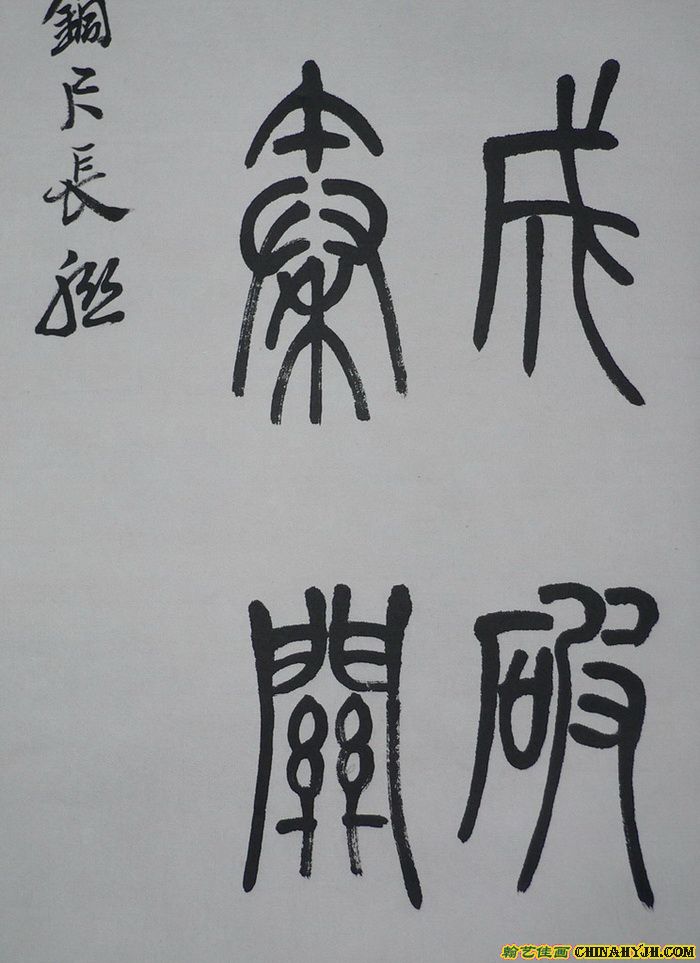 成破
秦關
銅尺長
翰艺佳画 CHINAHYJH.COM